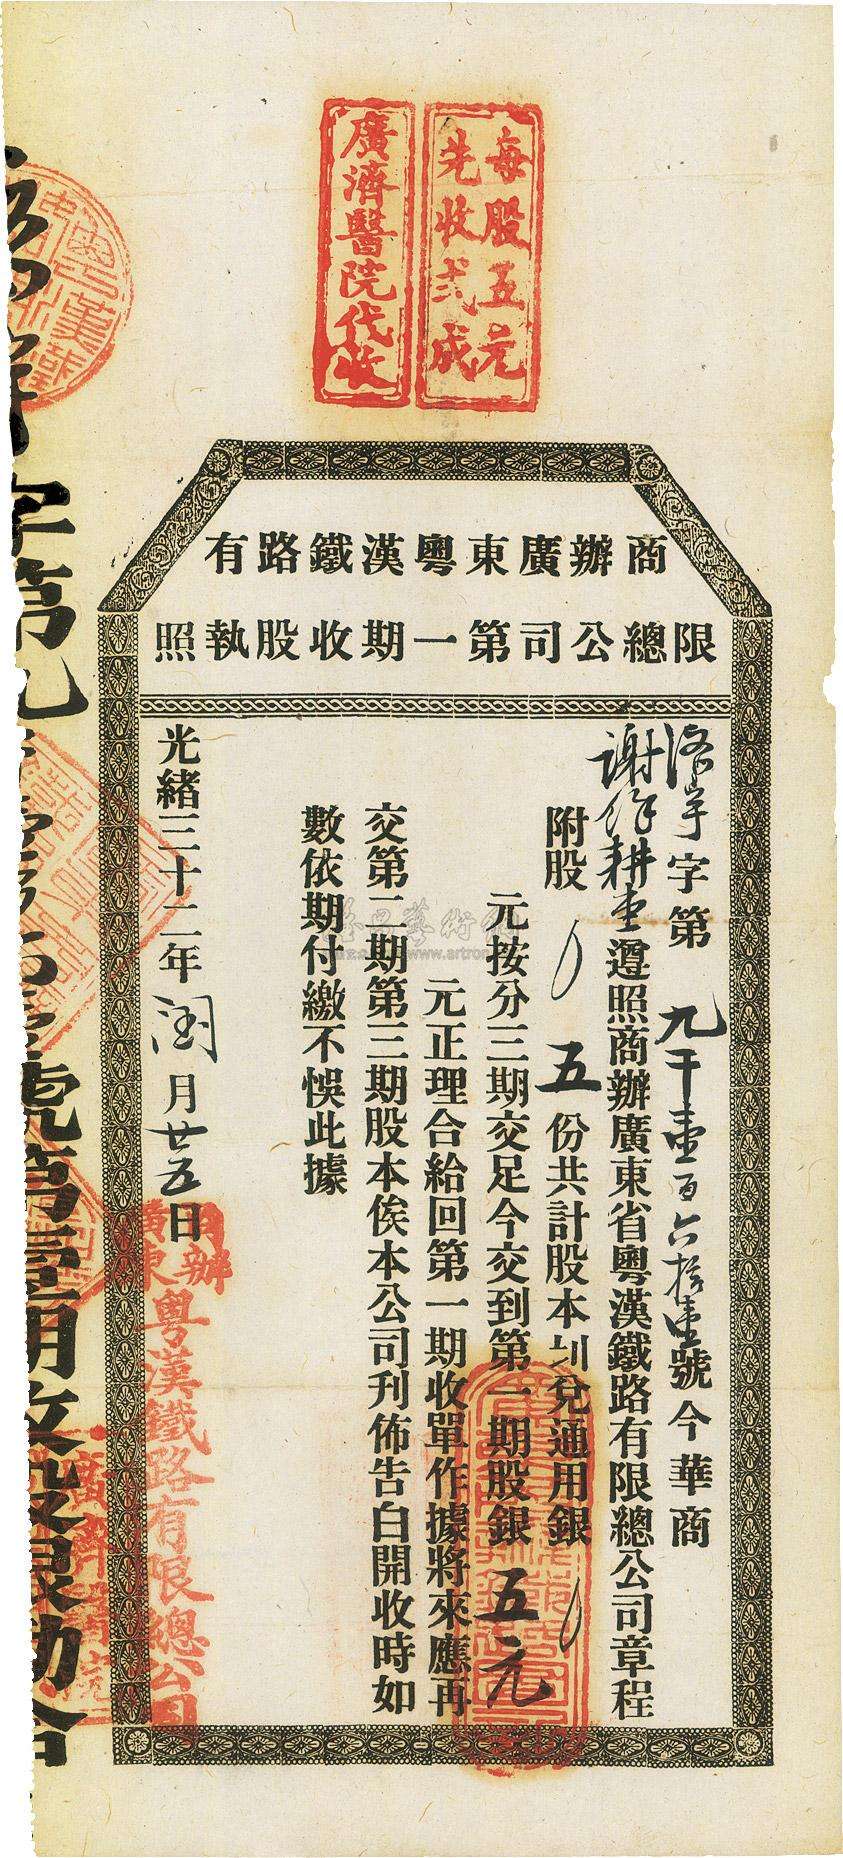 每股五元
先收弍成
廣濟醫院代收
商辦廣東粵漢鐵路有
限總公司第一期收股執照
字第九千壹百六拾壹號今華商
謝作耕堂遵照商辦廣東省粵漢鐵路有限總公司章程
附股 五份共計股本 兌通用銀
元按分三期交足今交到第一期股銀五元
元正理合給回第一期收單作據將來應再
交第二期第三期股本俟本公司刋佈告白開收時如
數依期付繳不悞此據
光緒三十二年閏月廿五日
商辦
廣東粵漢鐵路有限總公司
字第九
號第壹期收股銀勅給
www.artron